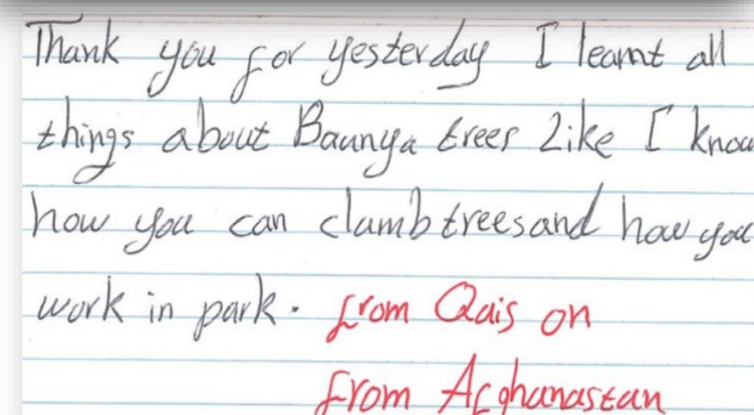 Thank you for yesterday I learnt all
things about Baunya trees Like I know
how you can clamb treesand how you
work in park. from Qais on
from Afghanastan